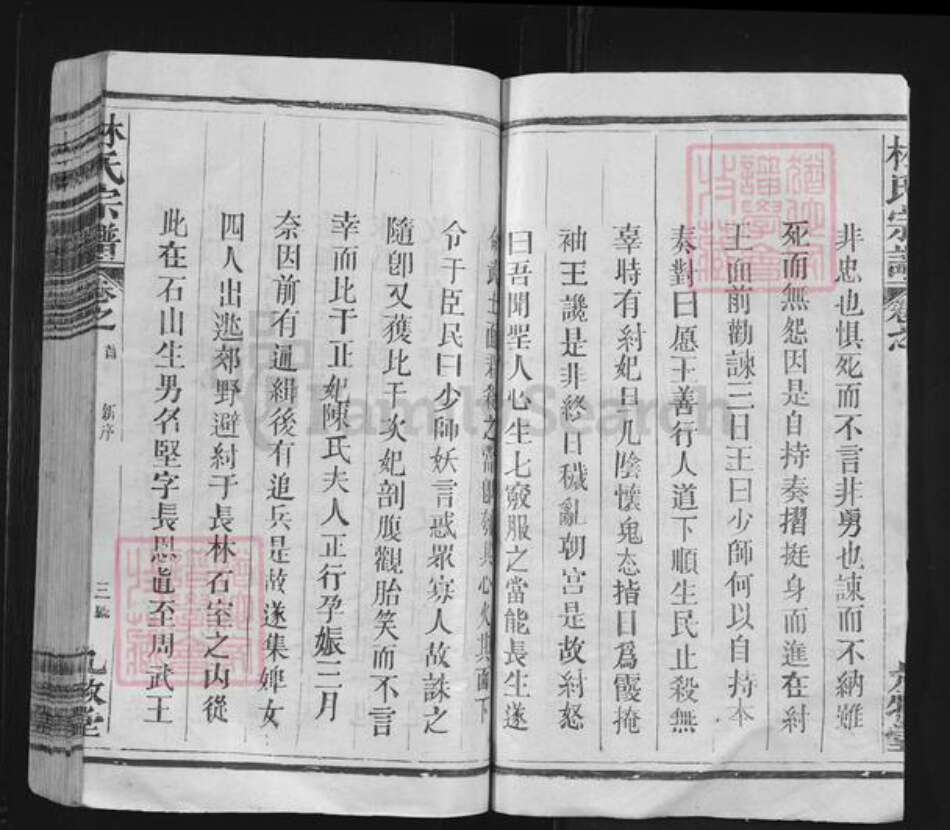 林氏宗譜
卷之
非忠也惧死而不言非勇也諫而不納雖
死而無怨因是自持奏摺挺身而進在紂
王面前勸諫三日王曰少師何以自持本
奏對曰愿王善行人道下順生民止殺無
辜時有紂妃
陰懷鬼态指日爲霞掩
袖王讒是非終日穢亂朝宫是故紂怒
曰吾聞聖人心生七竅服之當能長生遂
之
其心火其面下
令于臣民曰少師妖言惑眾寡人故誅之
隨卽又獲比干次妃剖腹觀胎笑而不言
幸而比干正妃陳氏夫人正行孕娠三月
奈因前有通緝後有追兵是故遂集婢女
四人出逃郊野避紂于長林石室之内從
此在石山生男名堅字長恩直至周武王
林氏宗譜
卷之
首
新序
三
九牧堂
FamilySearch